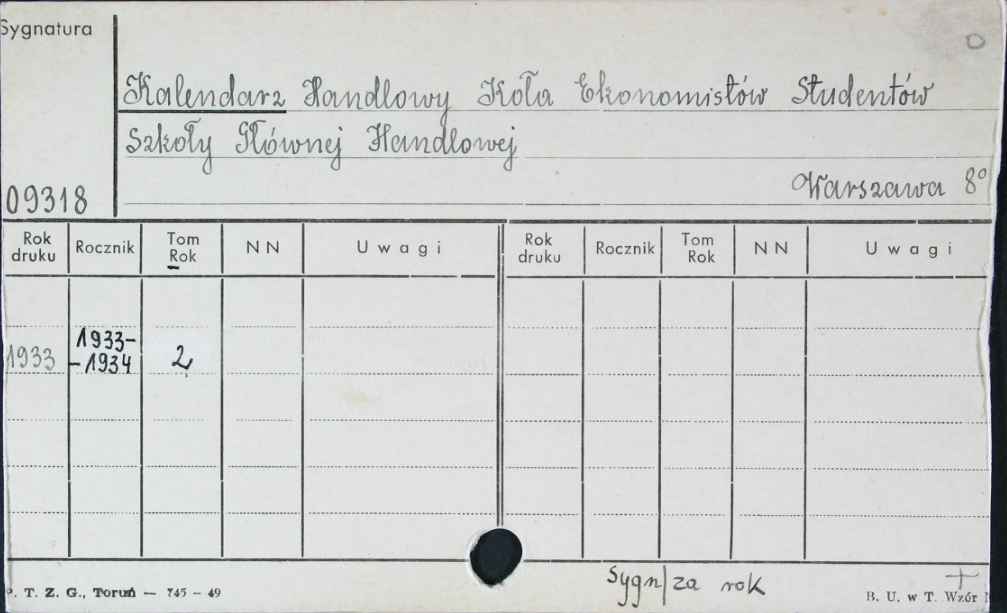 Sygnatura
0
Kalendarz Handlowy Koła Ekonomistów Studentów
Szkoły Głównej Handlowej
09318
Warszawa 8°
Rok druku Rocznik Tom Rok NN Uwagi Rok druku Rocznik Tom Rok NN Uwagi
1933 1933-
-1934 2
Sygn/za rok
P. T. Z. G., Toruń — 745 – 49
B. U. w T. Wzór